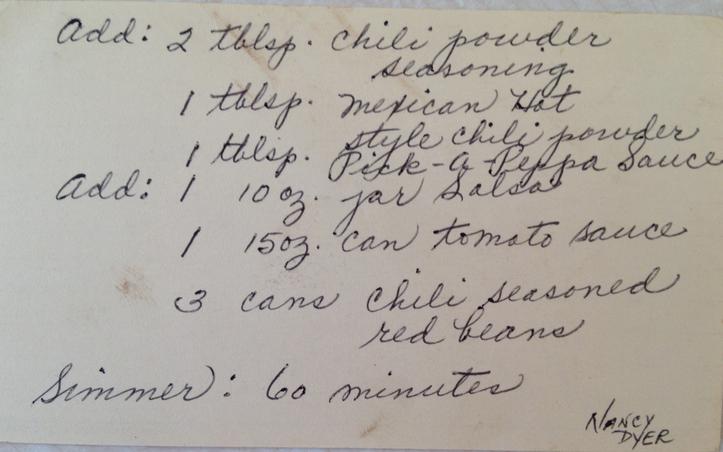 Add: 2 tblsp. chili powder
seasoning
1 tblsp. mexican Hot
style chili powder
1 tblsp. Pick-a-Peppa Sauce
Add: 1 10 oz. jar Salsa
1 15oz. can tomato sauce
3 cans chili seasoned
red beans
Simmer: 60 minutes
NANCY
DYER